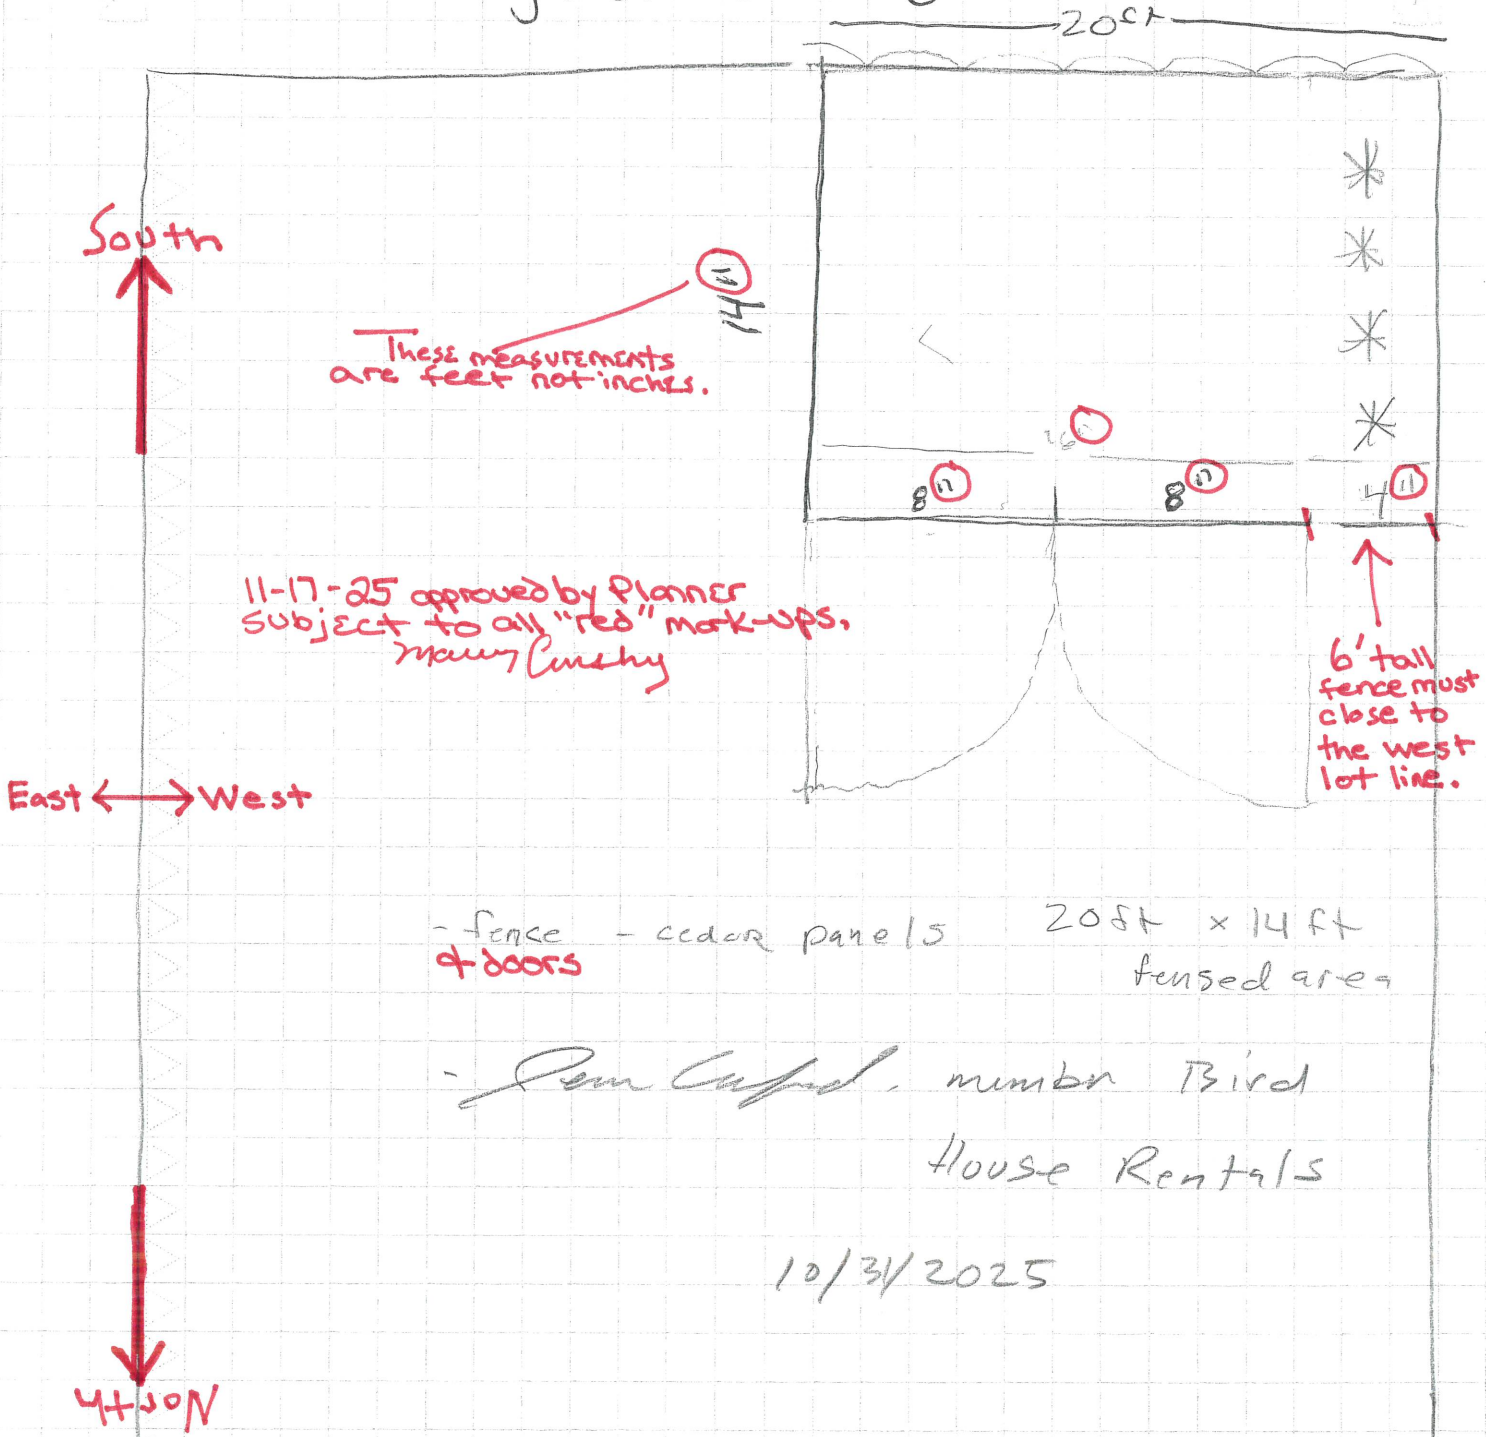 20ft
South
14"
These measurements
are feet not inches.
16
8"
8"
4"
11-17-25 approved by Planner
subject to all "red" mark-ups.
6' tall
fence must
close to
the west
lot line.
East
West
- fence - cedar panels
& doors
20ft x 14ft
fensed area
House Rentals
Bird
10/31/2025
North